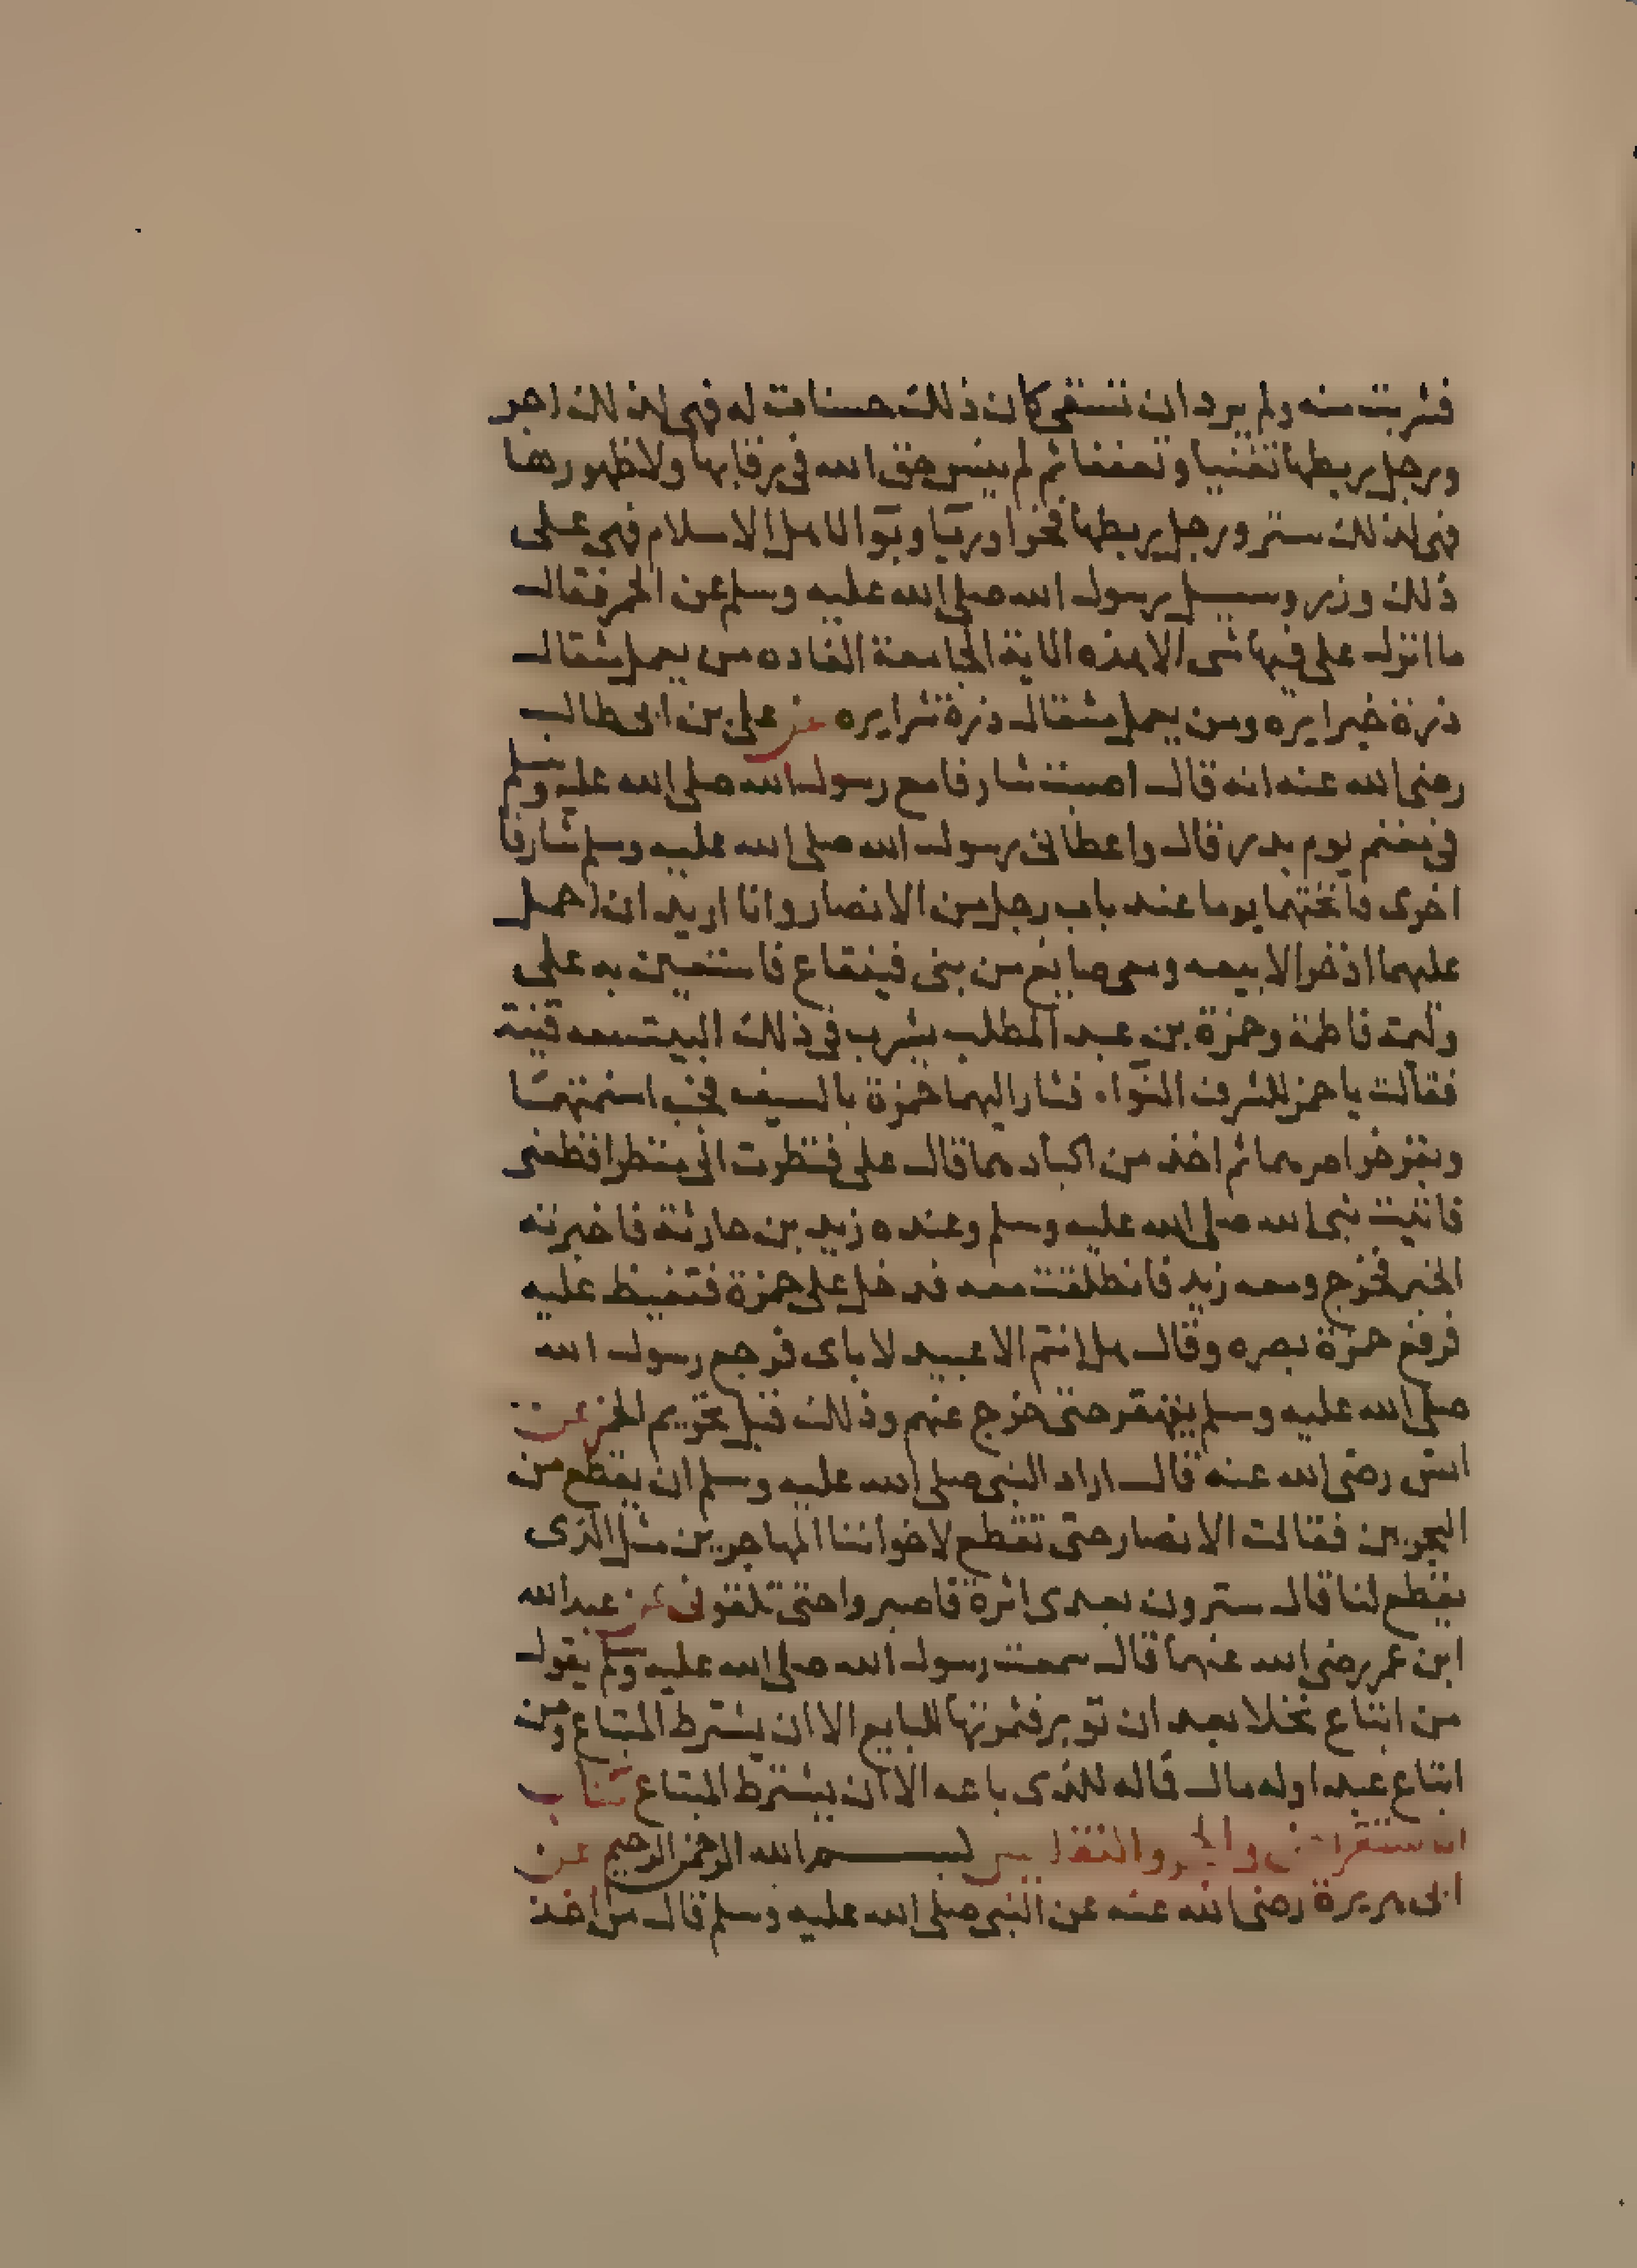 فشربت منه ولم يرد ان تسقى كان ذلك حسنات له فهى لذلك اجر
ورجل ربطها تغنيا وتعففا ثم لم ينس حق الله فى رقابها ولا ظهورها
فهى لذلك ستر ورجل ربطها فخرا وريا ونوا لاهل الاسلام فهى على
ذلك وزر وسيل رسول الله صلى الله عليه وسلم عن الحمر فقال
ما انزل على فيها شى الا هذه الاية الجامعة الفاده من يعمل مثقال
ذرة خيرا يره ومن يعمل مثقال ذرة شرا يره عن على بن ابى طالب
رضى الله عنه انه قال اصبت شارفا مع رسول الله صلى الله عليه وسلم
فى مغنم يوم بدر قال واعطانى رسول الله صلى الله عليه وسلم شارفا
اخرى فانختهما يوما عند باب رجل من الانصار وانا اريد ان احمل
عليهما اذخرا لابيعه ومعى صايغ من بنى قينقاع فاستعين به على
وليمة فاطمة وحمزة بن عبد المطلب يشرب فى ذلك البيت معه قينة
فقالت يا حمز للشرف النواء فثار اليهما حمزة بالسيف فجب اسنمتهما
وبقر خواصرهما ثم اخذ من اكبادهما قال على فنظرت الى منظر افظعنى
فاتيت نبى الله صلى الله عليه وسلم وعنده زيد بن حارثة فاخبرته
الخبر فخرج ومعه زيد فانطلقت معه فدخل على حمزة فتغيظ عليه
فرفع حمزة بصره وقال هل انتم الا عبيد لاباى فرجع رسول الله
صلى الله عليه وسلم يقهقر حتى خرج عنهم وذلك قبل تحريم الخمر عن
انس رضى الله عنه قال اراد النبى صلى الله عليه وسلم ان يقطع من
البحرين فقالت الانصار حتى تقطع لاخواننا المهاجرين مثل الذى
يقطع لنا قال سترون بعدى اثرة فاصبروا حتى تلقونى عن عبد الله
ابن عمر رضى الله عنهما قال سمعت رسول الله صلى الله عليه وسلم يقول
من ابتاع نخلا بعد ان توبر فثمرتها للبايع الا ان يشترط المبتاع ومن
ابتاع عبدا وله مال فماله للذى باعه الا ان يشترط المبتاع كتاب
الاستقراض والحجر والتفليس بسم الله الرحمن الرحيم عن
ابى هريرة رضى الله عنه عن النبى صلى الله عليه وسلم قال من اخذ